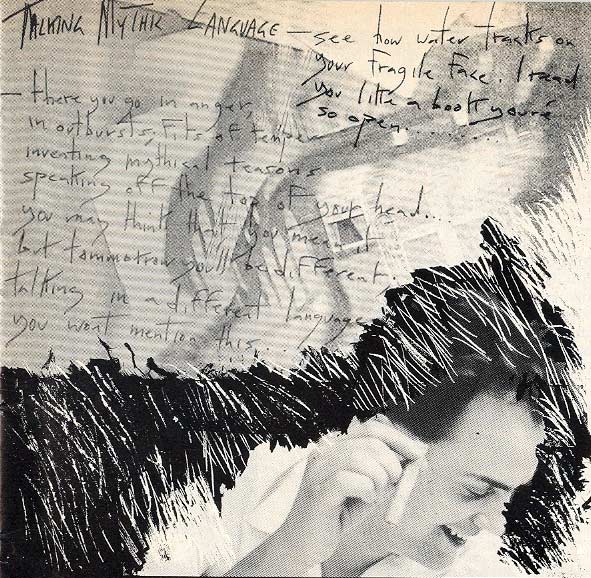 TALKING MYTHIC LANGUAGE — see how water tracks on
your fragile face. I read
you like a book you're
so open.........
— there you go in anger,
in outbursts, fits of temper
inventing mythical reasons
speaking off the top of your head...
you may think that you mean it
but tommorrow you'll be different.
talking in a different language
you wont mention this......